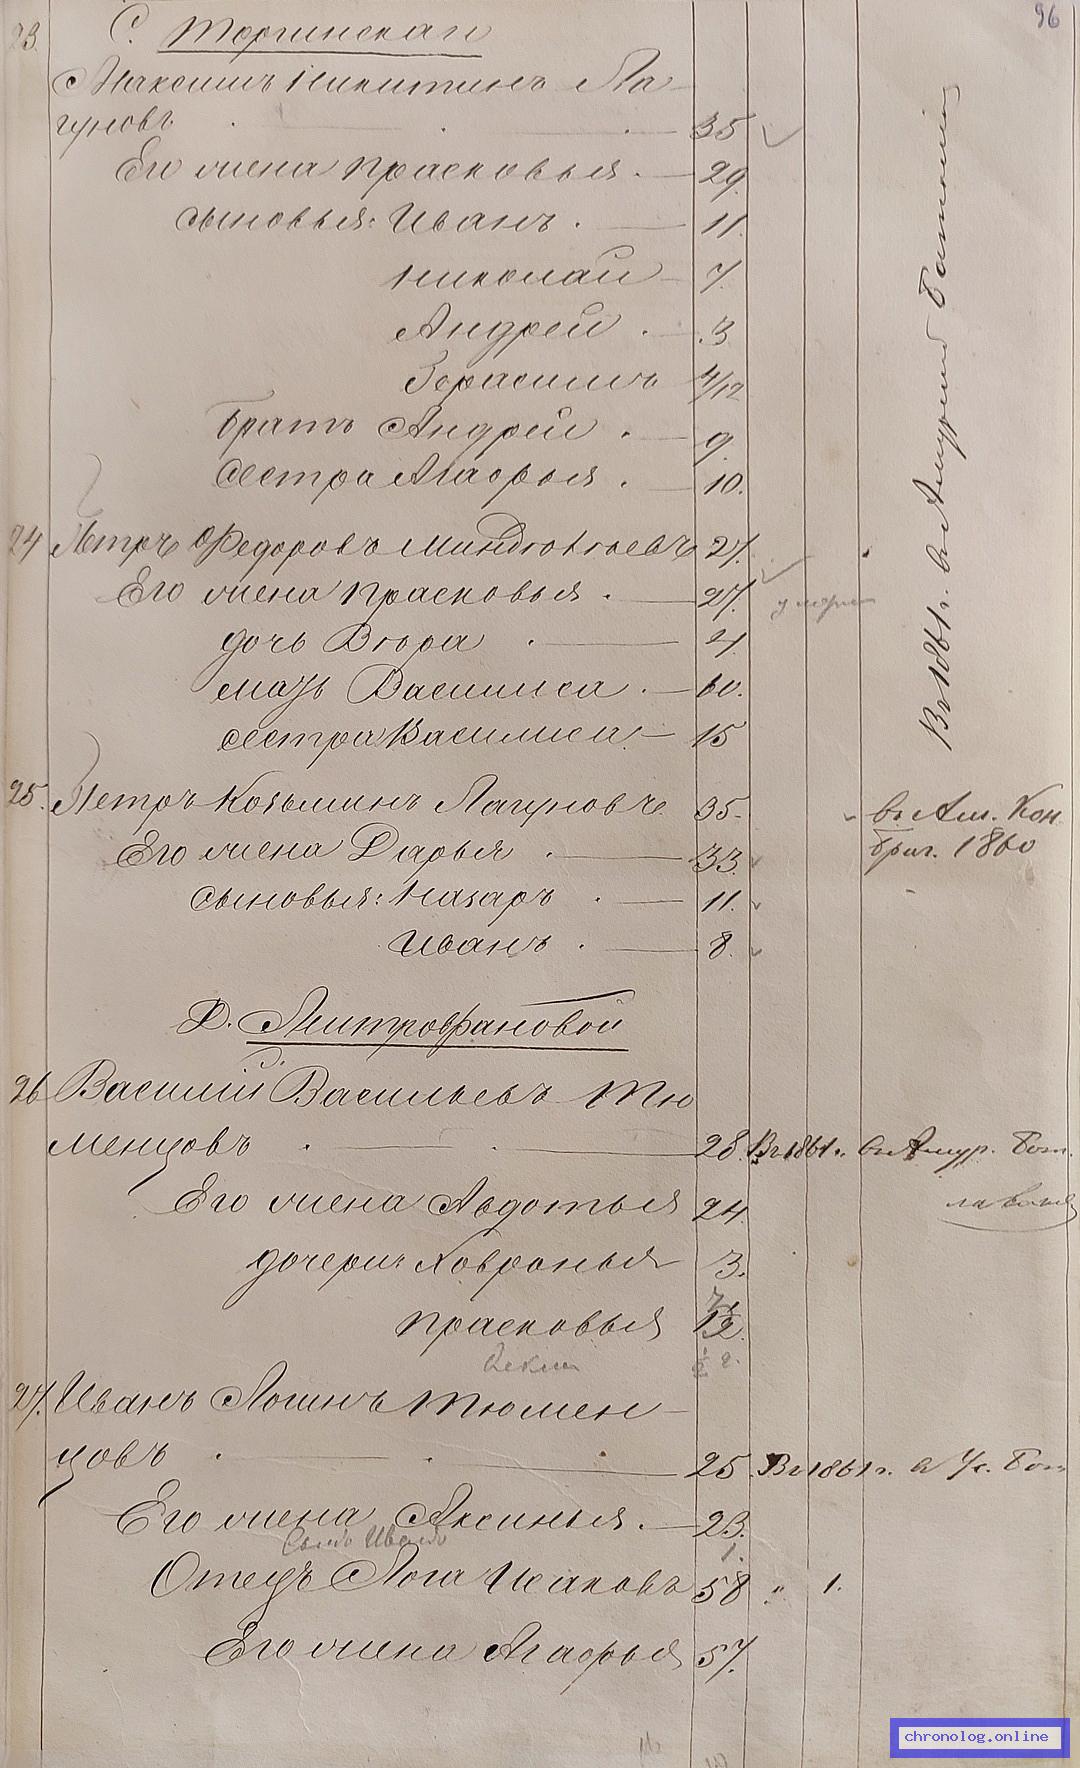 96
23. С. Торгинская
Максимъ Никитинъ Ла-
гуновъ 35
Его жена Прасковья 29
сыновья: Иванъ 11.
Николай 7.
Андрей 3
Герасимъ 4/12
Братъ Андрей 9
Сестра Марья 10.
Въ 1861 г. въ Амурский баталионъ
24 Петръ Федоровъ 27.
Его жена Прасковья 27.
дочь Вѣра 4
мать Василиса 60.
сестра Василиса 15
25. Петръ Козьминъ Лагуновъ 35. въ Ам. Кон.
Его жена Дарья 33. бриг. 1860
сыновья: Назаръ 11.
Иванъ 8.
Д. Митрофановой
26 Василій Васильевъ Тю
менцовъ 28. Въ 1861 г. въ Амур. бат.
Его жена Авдотья 24.
дочери: Ховронья 3.
Прасковья 12
27. Иванъ Логинъ Тюмен-
цовъ 25 Въ 1861 г. бат
Его жена Аксинья 23.
Сынъ Иванъ 1.
Отецъ Исаковъ 58 " 1.
Его жена 57.
chronolog.online